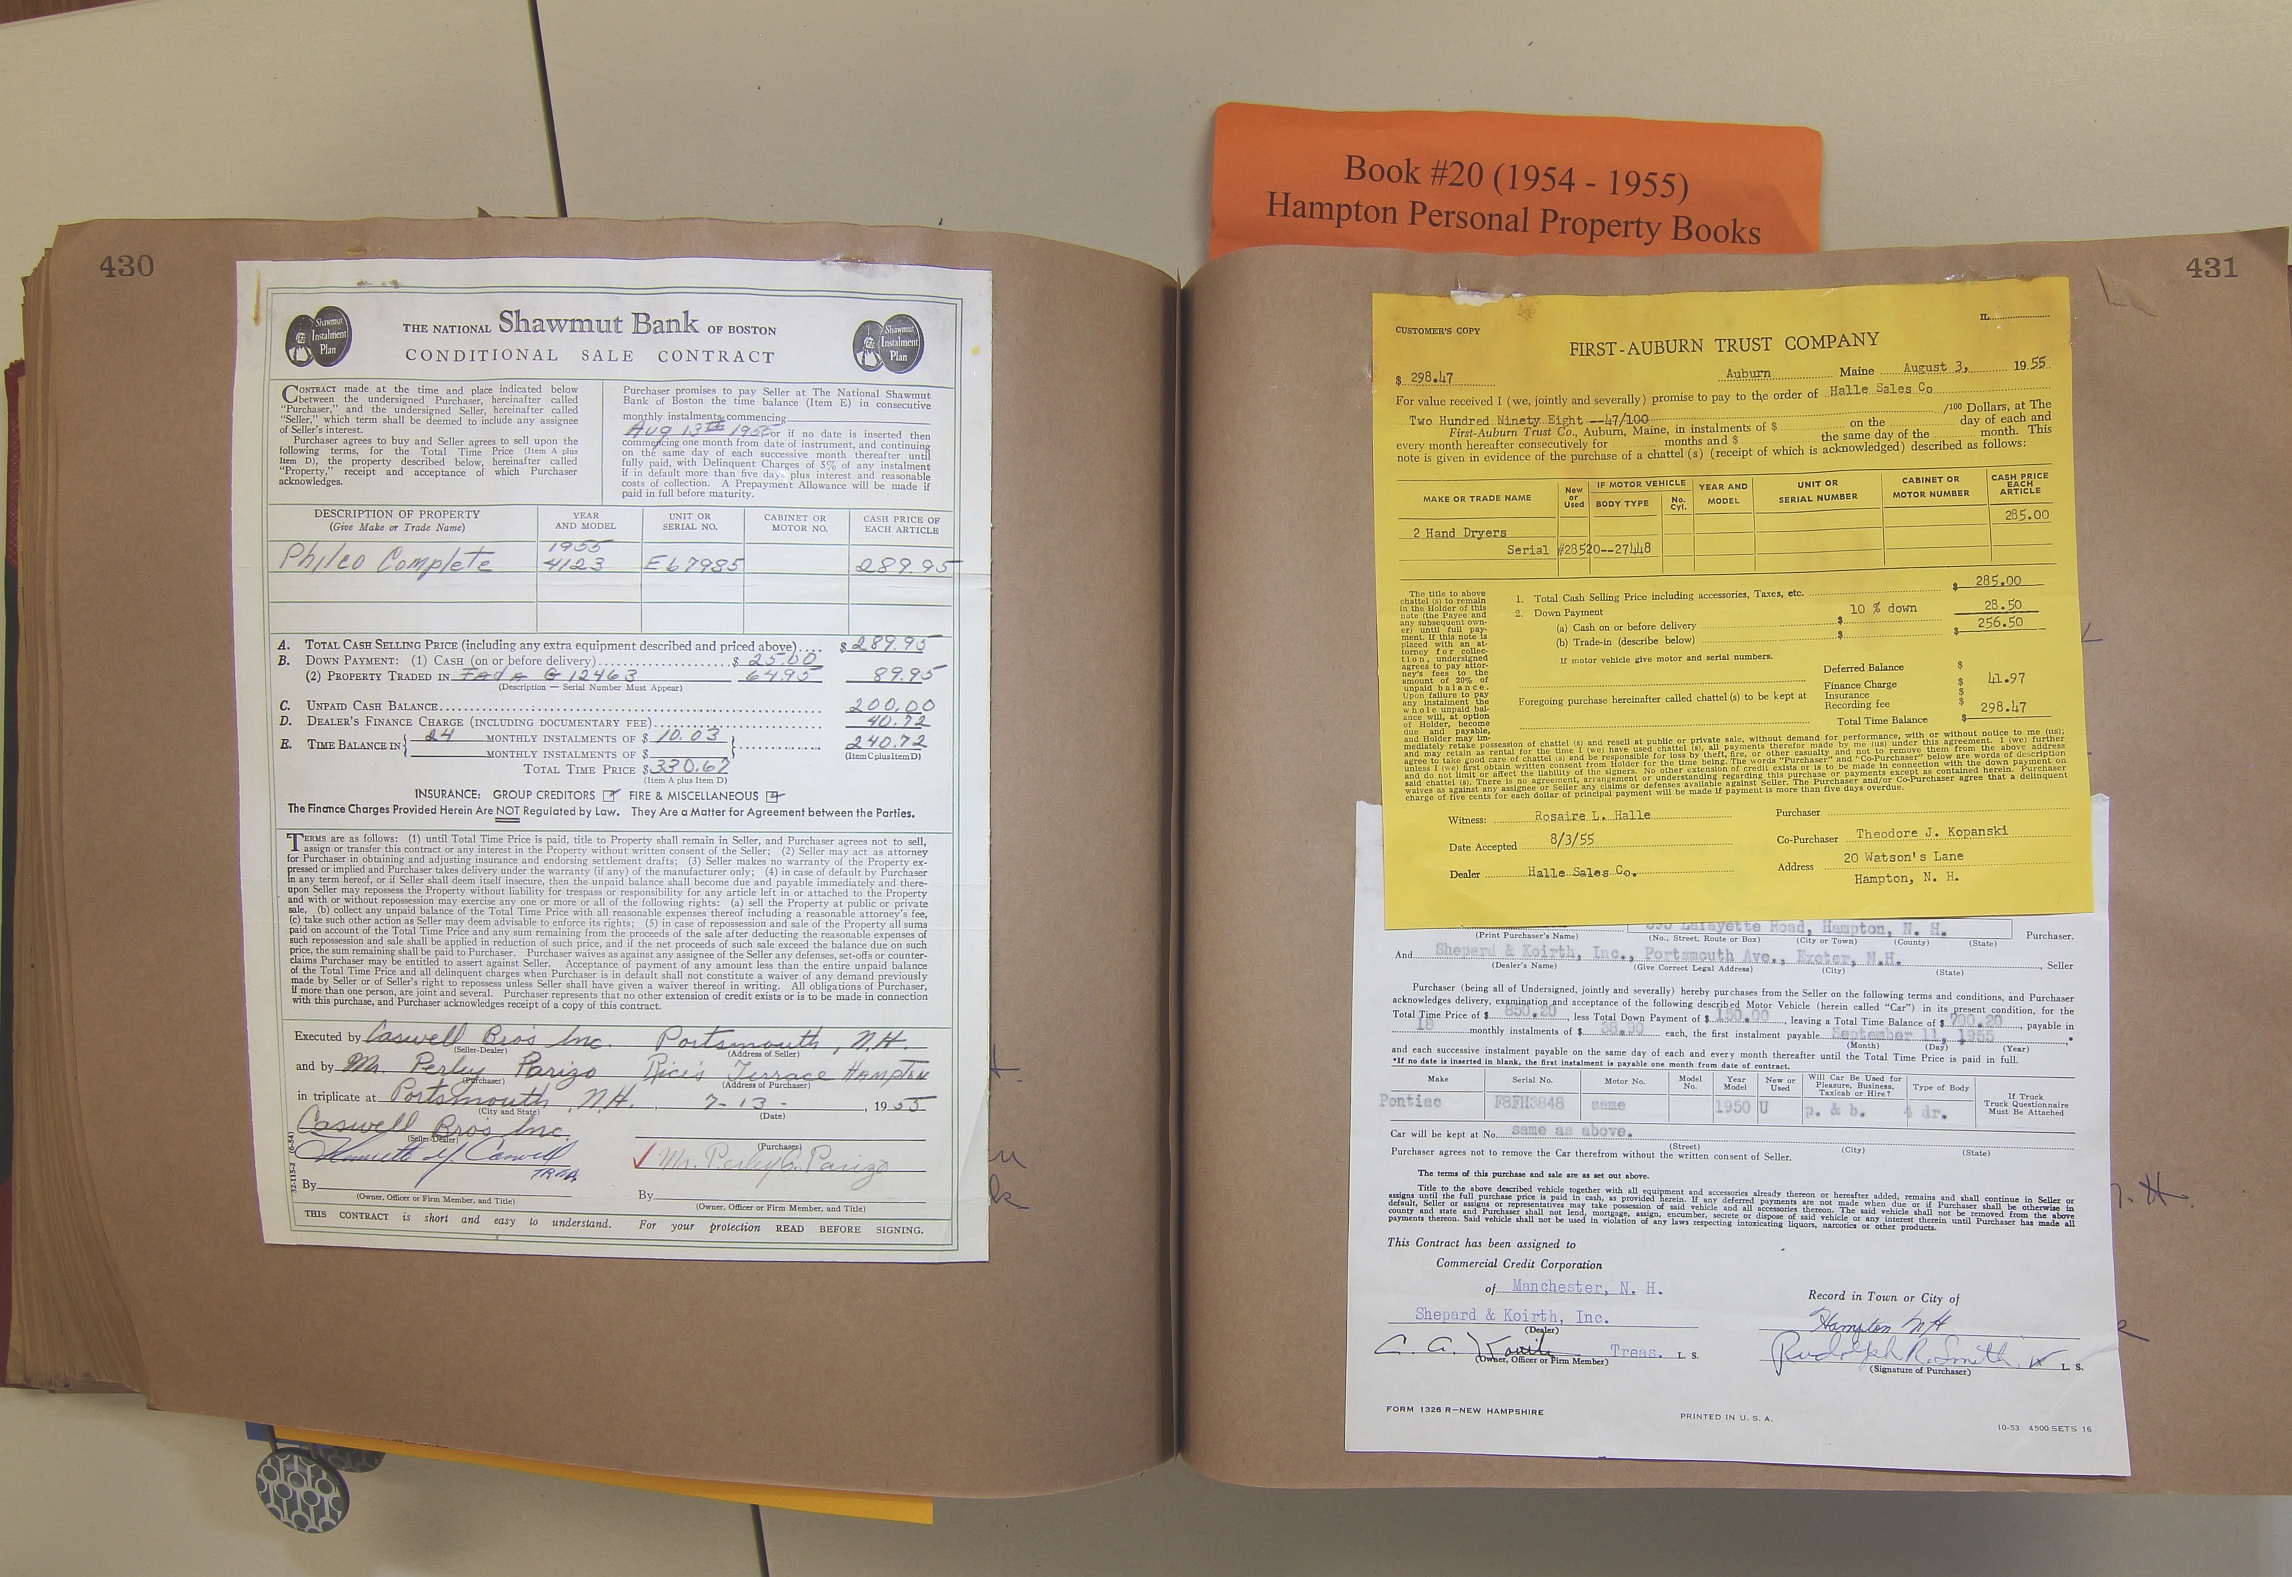 Book #20 (1954 - 1955)
Hampton Personal Property Books
430
Shawmut Instalment Plan
THE NATIONAL Shawmut Bank OF BOSTON
CONDITIONAL SALE CONTRACT
Shawmut Instalment Plan
CONTRACT made at the time and place indicated below
between the undersigned Purchaser, hereinafter called
"Purchaser," and the undersigned Seller, hereinafter called
"Seller," which term shall be deemed to include any assignee
of Seller's interest.
Purchaser agrees to buy and Seller agrees to sell upon the
following terms, for the Total Time Price (Item A plus
Item D), the property described below, hereinafter called
"Property," receipt and acceptance of which Purchaser
acknowledges.
Purchaser promises to pay Seller at The National Shawmut
Bank of Boston the time balance (Item E) in consecutive
monthly instalments commencing
Aug 13th 1955 or if no date is inserted then
commencing one month from date of instrument, and continuing
on the same day of each successive month thereafter until
fully paid, with Delinquent Charges of 5% of any instalment
if in default more than five days plus interest and reasonable
costs of collection. A Prepayment Allowance will be made if
paid in full before maturity.
DESCRIPTION OF PROPERTY (Give Make or Trade Name) YEAR AND MODEL UNIT OR SERIAL NO. CABINET OR MOTOR NO. CASH PRICE OF EACH ARTICLE
Philco Complete 1955 4123 E67985 289.95
A. TOTAL CASH SELLING PRICE (including any extra equipment described and priced above).... $289.95
B. DOWN PAYMENT: (1) CASH (on or before delivery)........ $ 25.00
(2) PROPERTY TRADED IN Fada G 12463 64.95 89.95
(Description — Serial Number Must Appear)
C. UNPAID CASH BALANCE........ 200.00
D. DEALER'S FINANCE CHARGE (INCLUDING DOCUMENTARY FEE)........ 40.72
E. TIME BALANCE IN 24 MONTHLY INSTALMENTS OF $ 10.03 240.72
MONTHLY INSTALMENTS OF $ (Item C plus Item D)
TOTAL TIME PRICE $ 330.67
(Item A plus Item D)
INSURANCE: GROUP CREDITORS FIRE & MISCELLANEOUS
The Finance Charges Provided Herein Are NOT Regulated by Law. They Are a Matter for Agreement between the Parties.
TERMS are as follows: (1) until Total Time Price is paid, title to Property shall remain in Seller, and Purchaser agrees not to sell,
assign or transfer this contract or any interest in the Property without written consent of the Seller; (2) Seller may act as attorney
for Purchaser in obtaining and adjusting insurance and endorsing settlement drafts; (3) Seller makes no warranty of the Property ex-
pressed or implied and Purchaser takes delivery under the warranty (if any) of the manufacturer only; (4) in case of default by Purchaser
in any term hereof, or if Seller shall deem itself insecure, then the unpaid balance shall become due and payable immediately and there-
upon Seller may repossess the Property without liability for trespass or responsibility for any article left in or attached to the Property
and with or without repossession may exercise any one or more or all of the following rights: (a) sell the Property at public or private
sale, (b) collect any unpaid balance of the Total Time Price with all reasonable expenses thereof including a reasonable attorney's fee,
(c) take such other action as Seller may deem advisable to enforce its rights; (5) in case of repossession and sale of the Property all sums
paid on account of the Total Time Price and any sum remaining from the proceeds of the sale after deducting the reasonable expenses of
such repossession and sale shall be applied in reduction of such price, and if the net proceeds of such sale exceed the balance due on such
price, the sum remaining shall be paid to Purchaser. Purchaser waives as against any assignee of the Seller any defenses, set-offs or counter-
claims Purchaser may be entitled to assert against Seller. Acceptance of payment of any amount less than the entire unpaid balance
of the Total Time Price and all delinquent charges when Purchaser is in default shall not constitute a waiver of any demand previously
made by Seller or of Seller's right to repossess unless Seller shall have given a waiver thereof in writing. All obligations of Purchaser,
if more than one person, are joint and several. Purchaser represents that no other extension of credit exists or is to be made in connection
with this purchase, and Purchaser acknowledges receipt of a copy of this contract.
Executed by Caswell Bros Inc. Portsmouth, N.H.
(Seller-Dealer) (Address of Seller)
and by Mr. Perley Parizo Rice's Terrace HAMPTON
(Purchaser) (Address of Purchaser)
in triplicate at Portsmouth, N.H., 7-13-, 1955
(City and State) (Date)
Caswell Bros Inc.
(Seller-Dealer) (Purchaser)
Caswell Treas. Mr. Perley C. Parizo
By By
(Owner, Officer or Firm Member, and Title) (Owner, Officer or Firm Member, and Title)
32-115-2 (6-54)
THIS CONTRACT is short and easy to understand. For your protection READ BEFORE SIGNING.
431
CUSTOMER'S COPY
IL
FIRST-AUBURN TRUST COMPANY
$ 298.47 Auburn Maine August 3, 1955
For value received I (we, jointly and severally) promise to pay to the order of Halle Sales Co
Two Hundred Ninety Eight --47/100 /100 Dollars, at The
First-Auburn Trust Co., Auburn, Maine, in instalments of $ on the day of each and
every month hereafter consecutively for months and $ the same day of the month. This
note is given in evidence of the purchase of a chattel (s) (receipt of which is acknowledged) described as follows:
MAKE OR TRADE NAME New or Used IF MOTOR VEHICLE BODY TYPE No. Cyl. YEAR AND MODEL UNIT OR SERIAL NUMBER CABINET OR MOTOR NUMBER CASH PRICE EACH ARTICLE
285.00
2 Hand Dryers
Serial #28520--27448
The title to above
chattel (s) to remain
in the Holder of this
note (the Payee and
any subsequent own-
er) until full pay-
ment. If this note is
placed with an at-
torney for collec-
tion, undersigned
agrees to pay attor-
ney's fees to the
amount of 20% of
unpaid balance.
Upon failure to pay
any instalment the
whole unpaid bal-
ance will, at option
of Holder, become
due and payable,
and Holder may im-
1. Total Cash Selling Price including accessories, Taxes, etc. $ 285.00
2. Down Payment 10 % down 28.50
(a) Cash on or before delivery $ 256.50
(b) Trade-in (describe below) $ $
If motor vehicle give motor and serial numbers.
Deferred Balance $
Finance Charge $ 41.97
Foregoing purchase hereinafter called chattel (s) to be kept at Insurance $
Recording fee $ 298.47
Total Time Balance $
mediately retake possession of chattel (s) and resell at public or private sale, without demand for performance, with or without notice to me (us);
and may retain as rental for the time I (we) have used chattel (s), all payments therefor made by me (us) under this agreement. I (we) further
agree to take good care of chattel (s) and be responsible for loss by theft, fire, or other casualty and not to remove them from the above address
unless I (we) first obtain written consent from Holder for the time being. The words "Purchaser" and "Co-Purchaser" below are words of description
and do not limit or affect the liability of the signers. No other extension of credit exists or is to be made in connection with the down payment on
said chattel (s). There is no agreement, arrangement or understanding regarding this purchase or payments except as contained herein. Purchaser
waives as against any assignee or Seller any claims or defenses available against Seller. The Purchaser and/or Co-Purchaser agree that a delinquent
charge of five cents for each dollar of principal payment will be made if payment is more than five days overdue.
Witness: Rosaire L. Halle Purchaser
Date Accepted 8/3/55 Co-Purchaser Theodore J. Kopanski
Dealer Halle Sales Co. Address 20 Watson's Lane
Hampton, N. H.
Lafayette Road, Hampton, N. H.
(Print Purchaser's Name) (No., Street, Route or Box) (City or Town) (County) (State) Purchaser.
And Shepard & Koirth, Inc., Portsmouth Ave., Exeter, N.H., Seller
(Dealer's Name) (Give Correct Legal Address) (City) (State)
Purchaser (being all of Undersigned, jointly and severally) hereby purchases from the Seller on the following terms and conditions, and Purchaser
acknowledges delivery, examination and acceptance of the following described Motor Vehicle (herein called "Car") in its present condition, for the
Total Time Price of $ 850.20, less Total Down Payment of $ 150.00, leaving a Total Time Balance of $ 700.20, payable in
18 monthly instalments of $ 38.90 each, the first instalment payable September 11, 1955,*
(Month) (Day) (Year)
and each successive instalment payable on the same day of each and every month thereafter until the Total Time Price is paid in full.
*If no date is inserted in blank, the first instalment is payable one month from date of contract.
Make Serial No. Motor No. Model No. Year Model New or Used Will Car Be Used for Pleasure, Business, Taxicab or Hire? Type of Body If Truck Truck Questionnaire Must Be Attached
Pontiac P8FH3848 same 1950 U p. & b. 4 dr.
Car will be kept at No. same as above.
(Street) (City) (State)
Purchaser agrees not to remove the Car therefrom without the written consent of Seller.
The terms of this purchase and sale are as set out above.
Title to the above described vehicle together with all equipment and accessories already thereon or hereafter added, remains and shall continue in Seller or
assigns until the full purchase price is paid in cash, as provided herein. If any deferred payments are not made when due or if Purchaser shall be otherwise in
default, Seller or assigns or representatives may take possession of said vehicle and all accessories thereon. The said vehicle shall not be removed from the above
county and state and Purchaser shall not lend, mortgage, assign, encumber, secrete or dispose of said vehicle or any interest therein until Purchaser has made all
payments thereon. Said vehicle shall not be used in violation of any laws respecting intoxicating liquors, narcotics or other products.
This Contract has been assigned to
Commercial Credit Corporation
of Manchester, N. H.
Record in Town or City of
Shepard & Koirth, Inc. Hampton NH
(Dealer)
C. A. Koirth Treas. L. S. Rudolph R. Smith L. S.
(Owner, Officer or Firm Member) (Signature of Purchaser)
FORM 1326 R—NEW HAMPSHIRE PRINTED IN U. S. A. 10-53 4500 SETS 16